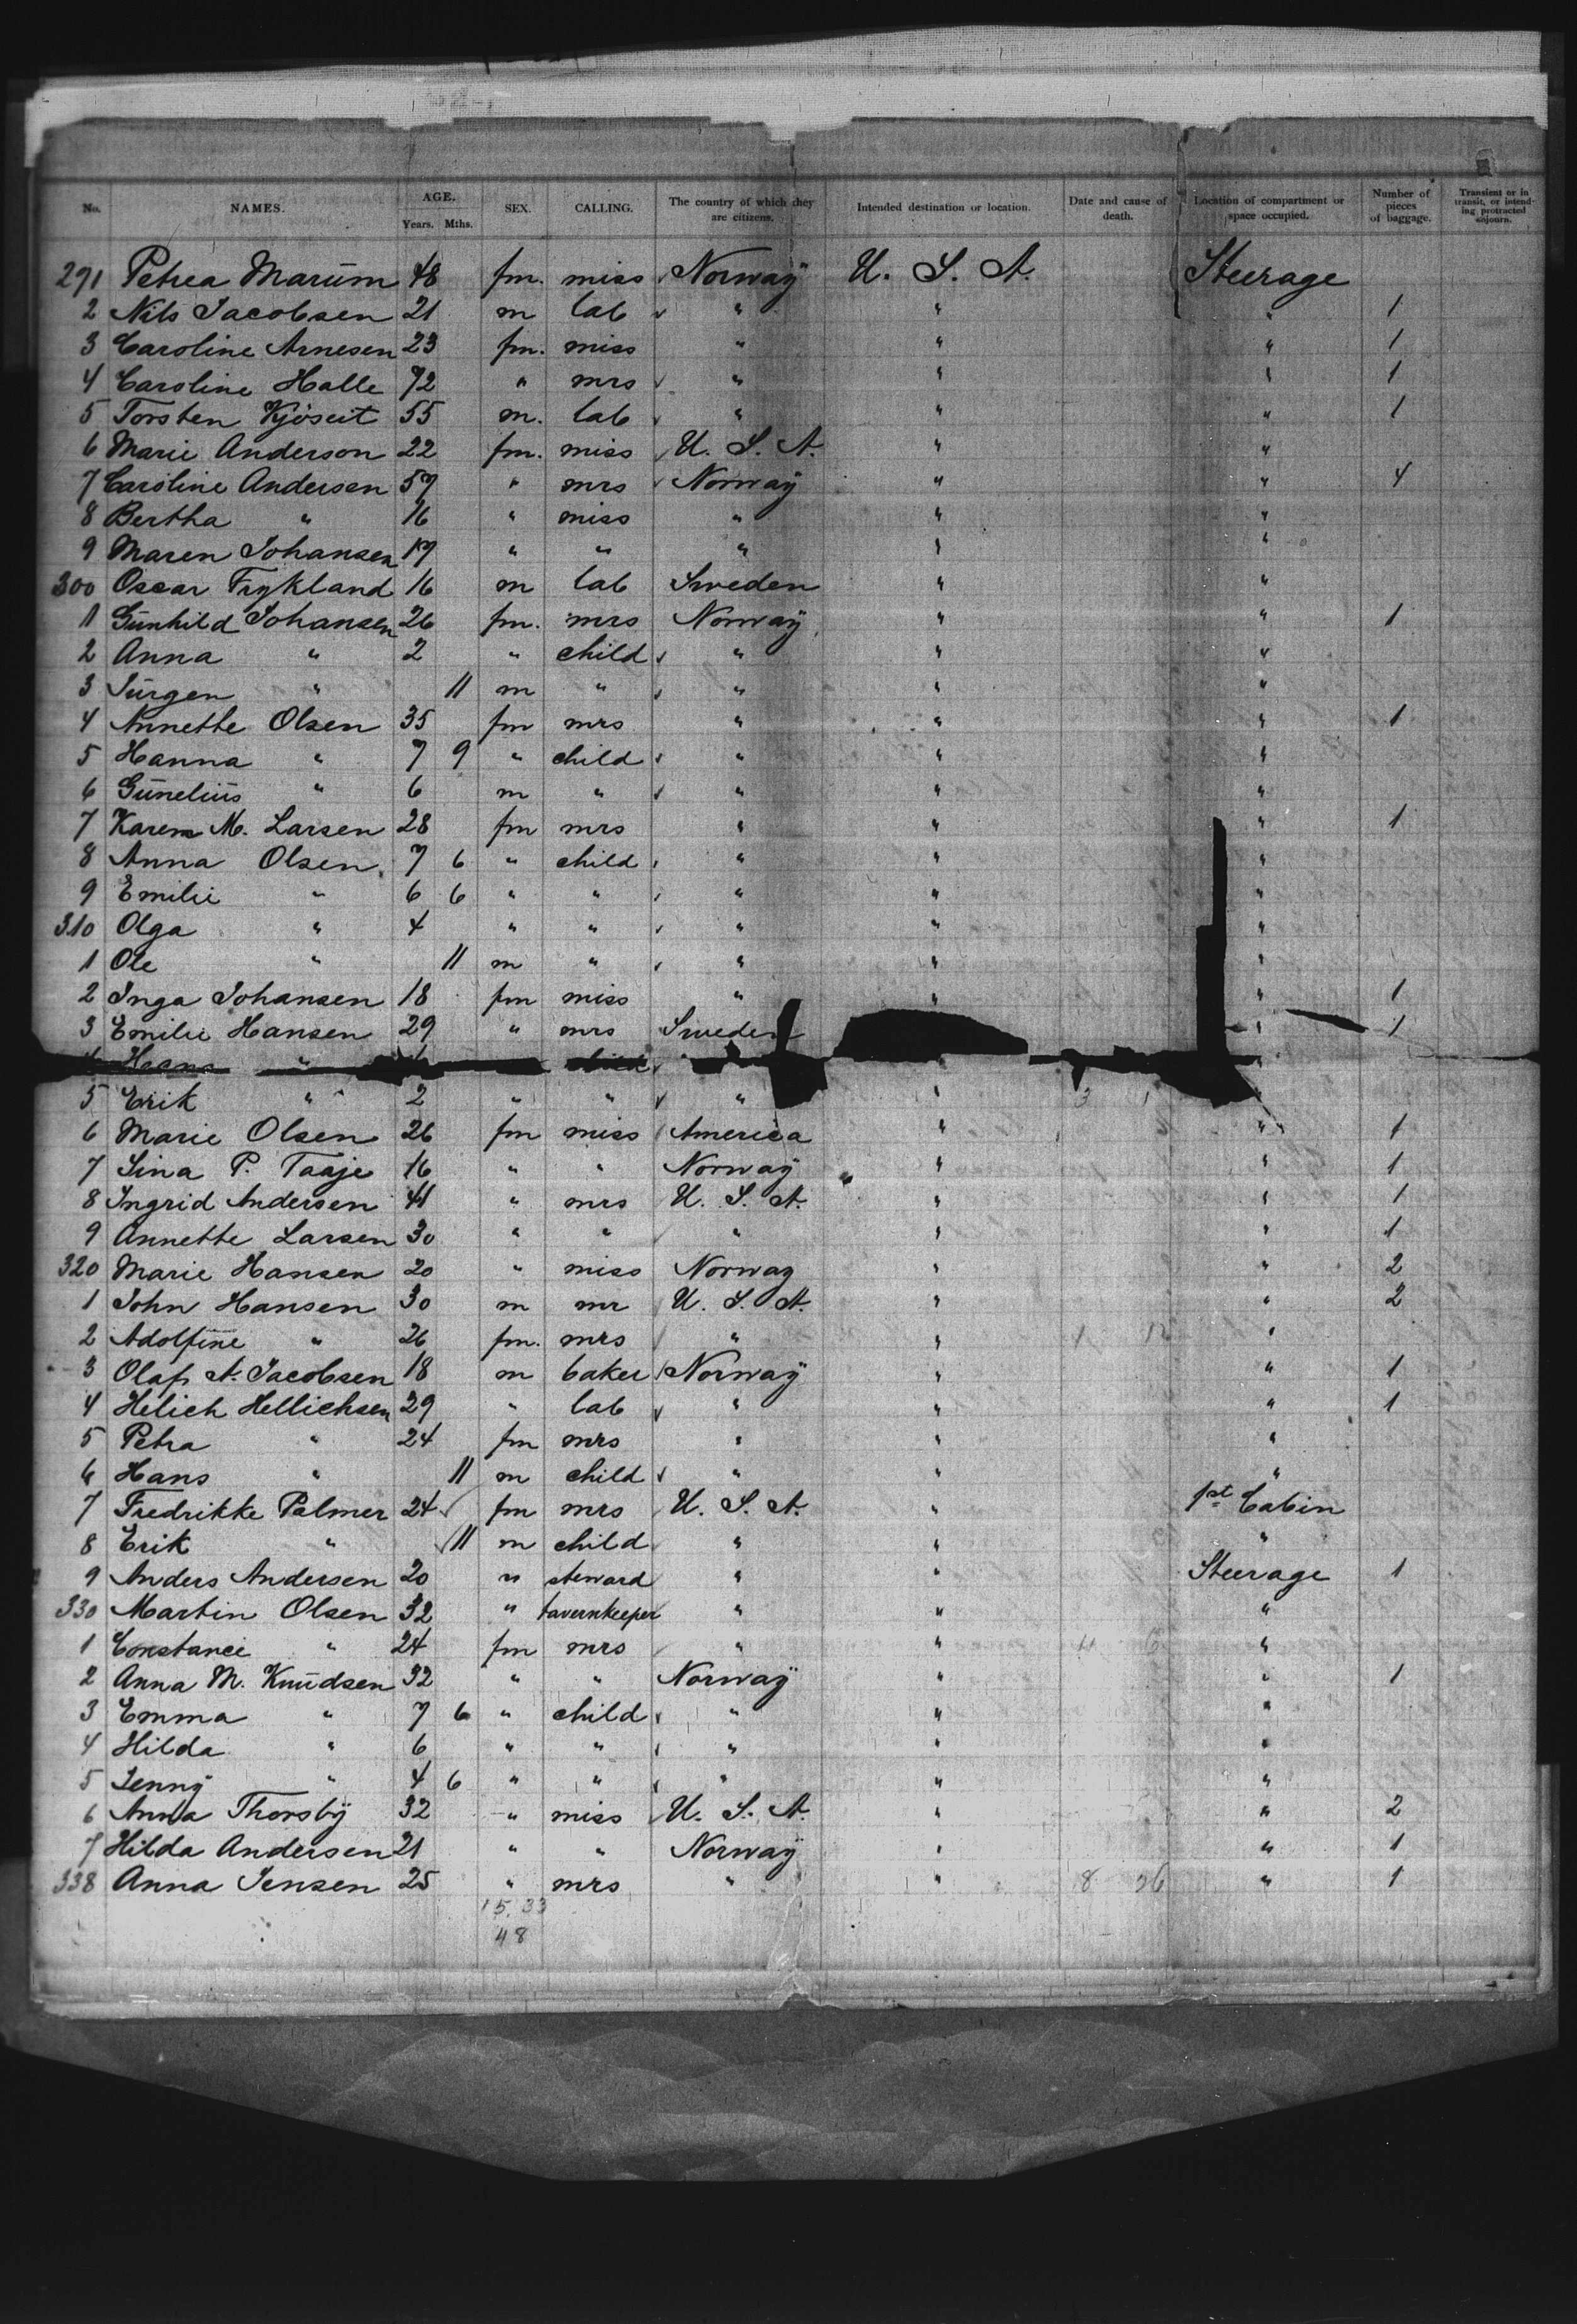 No. NAMES. AGE. Years. Mths. SEX. CALLING. The country of which they are citizens. Intended destination or location. Date and cause of death. Location of compartment or space occupied. Number of pieces of baggage. Transient or in transit, or intending protracted sojourn.
291 Petrea Marüm 48 fm. miss Norway U. S. A. Steerage
2 Nils Jacobsen 21 m lab " " " 1
3 Caroline Arnesen 23 fm. miss " " " 1
4 Caroline Halle 72 " mrs " " " 1
5 Torsten Kjöseit 55 m. lab " " " 1
6 Marie Anderson 22 fm. miss U. S. A. " "
7 Caroline Andersen 57 " mrs Norway " " 4
8 Bertha " 16 " miss " " "
9 Maren Johansen 17 " " " " "
300 Oscar Frykland 16 m lab Sweden " "
1 Günhild Johansen 26 fm. mrs Norway " " 1
2 Anna " 2 " child " " "
3 Jürgen " 11 m " " " "
4 Annette Olsen 35 fm mrs " " " 1
5 Hanna " 7 9 " child " " "
6 Günelius " 6 m " " " "
7 Karen M. Larsen 28 fm mrs " " " 1
8 Anna Olsen 7 6 " child " " "
9 Emilie " 6 6 " " " " "
310 Olga " 4 " " " " "
1 Ole " 11 m " " " "
2 Inga Johansen 18 fm miss " " " 1
3 Emilie Hansen 29 " mrs Sweden " 1
4 Hans " child " "
5 Erik " 2 " " " " 3 1
6 Marie Olsen 26 fm miss America " " 1
7 Lina P. Taaje 16 " " Norway " " 1
8 Ingrid Andersen 41 " mrs U. S. A. " " 1
9 Annette Larsen 30 " " " " " 1
320 Marie Hansen 20 " miss Norway " " 2
1 John Hansen 30 m mr U. S. A. " " 2
2 Adolfine " 26 fm. mrs " " 1 12 "
3 Olaf A. Jacobsen 18 m baker Norway " " 1
4 Helich Hellichsen 29 " lab " " " 1
5 Petra " 24 fm mrs " " "
6 Hans " 11 m child " " "
7 Fredrikke Palmer 24 fm mrs U. S. A. " 1st Cabin
8 Erik " 11 m child " " "
9 Anders Andersen 20 " steward " " Steerage 1
330 Martin Olsen 32 " tavernkeeper " " "
1 Constance " 24 fm mrs " " 4 6 "
2 Anna M. Knüdsen 32 " " Norway " " 1
3 Emma " 7 6 " child " " "
4 Hilda " 6 " " " " "
5 Jenny " 4 6 " " " " "
6 Anna Thorsby 32 " miss U. S. A. " " 2
7 Hilda Andersen 21 " " Norway " " 1
338 Anna Jensen 25 " mrs " " 8 26 " 1
15. 33
48